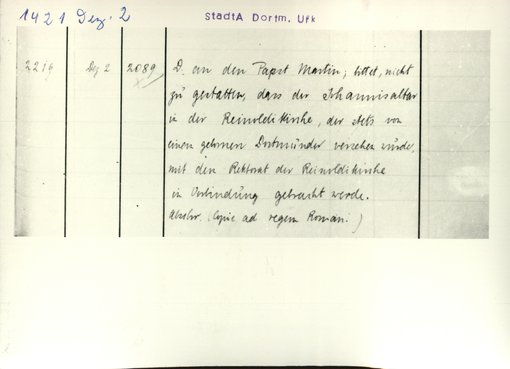 1421 Dez. 2
StadtA Dortm. Ufk
2219 Dz 2 2089
D. an den Papst Martin, bittet, nicht
zu gestatten, dass der Johannisaltar
in der Reinoldikirche, der stets von
einem gebornen Dortmunder versehen würde,
mit dem Rektorat der Reinoldikirche
in Verbindung gebracht werde.
Abschr. (Copie ad regem Roman.)